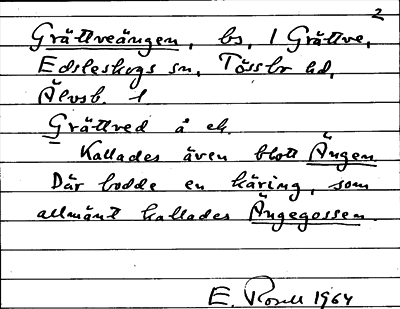 2
Grättveängen, bs, 1 Grättve,
Edsleskogs sn, Tössbo hd,
Älvsb. l
Grättved å ek.
Kallades även blott Ängen
Där bodde en käring, som
allmänt kallades Ängegossen.
E. Rosell 1964